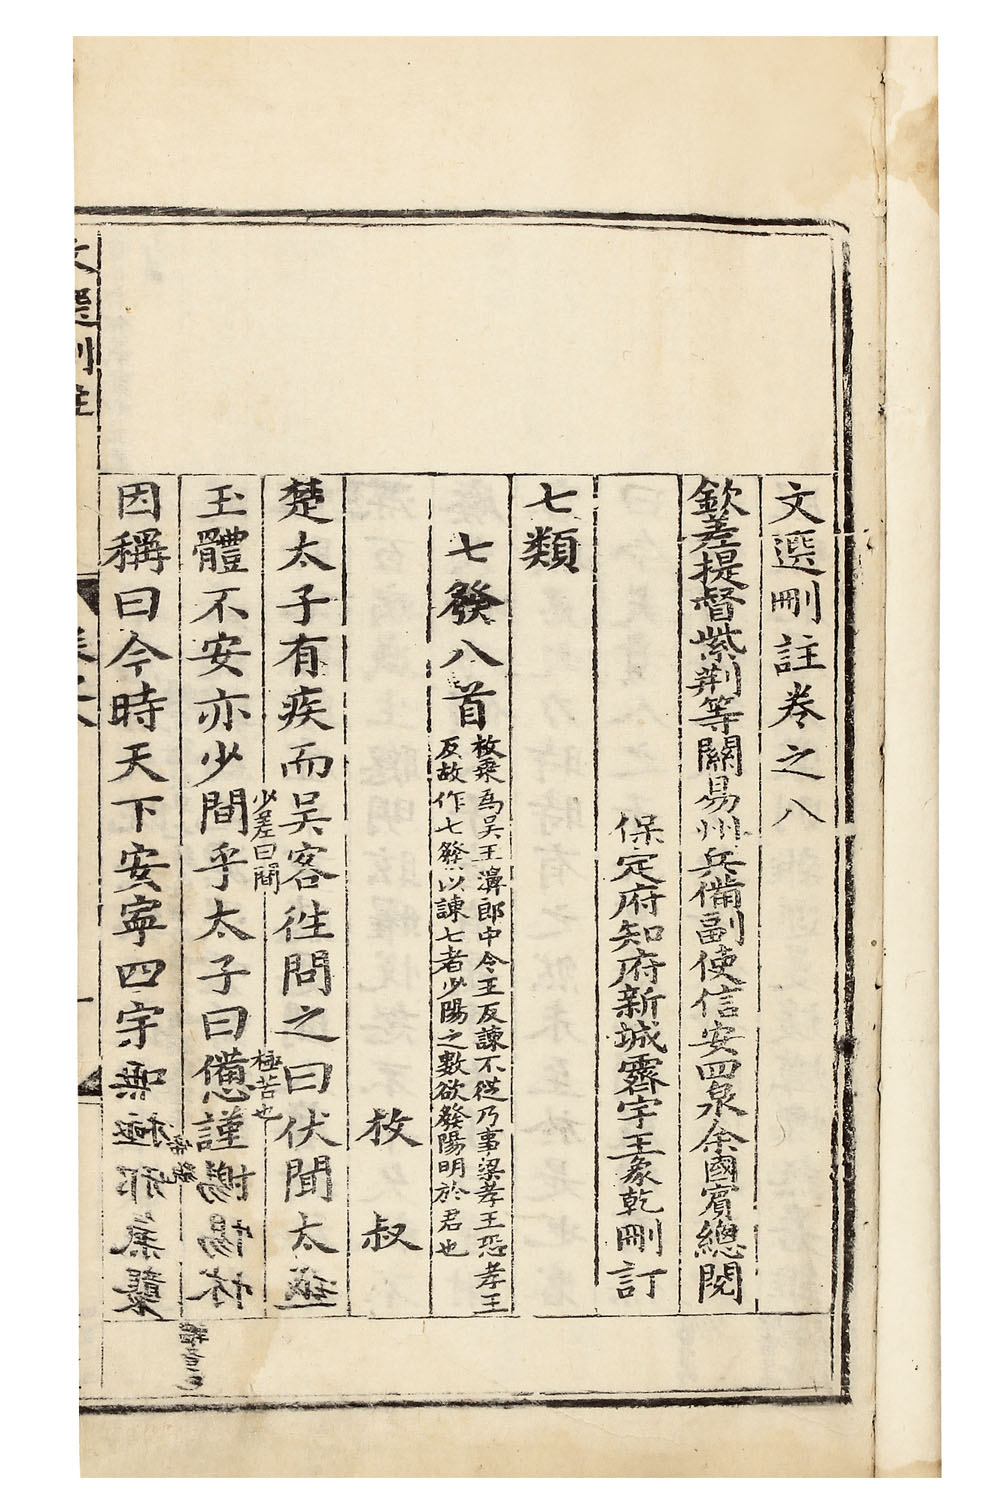 文選刪註卷之八
欽差提督紫荆等關易州兵備副使信安四泉余國賓總閱
保定府知府新城霽宇王象乾刪訂
七類
七發八首
枚乗為吴王濞郎中今王反諫不從乃事梁孝王恐孝王
反故作七發以諫七者少陽之數欲發陽明於君也
枚叔
楚太子有疾而吴客徃問之曰伏聞太
玉體不安亦少間乎太子曰憊謹
少差曰間
極苦也
因稱曰今時天下安寧四宇
文選刪註